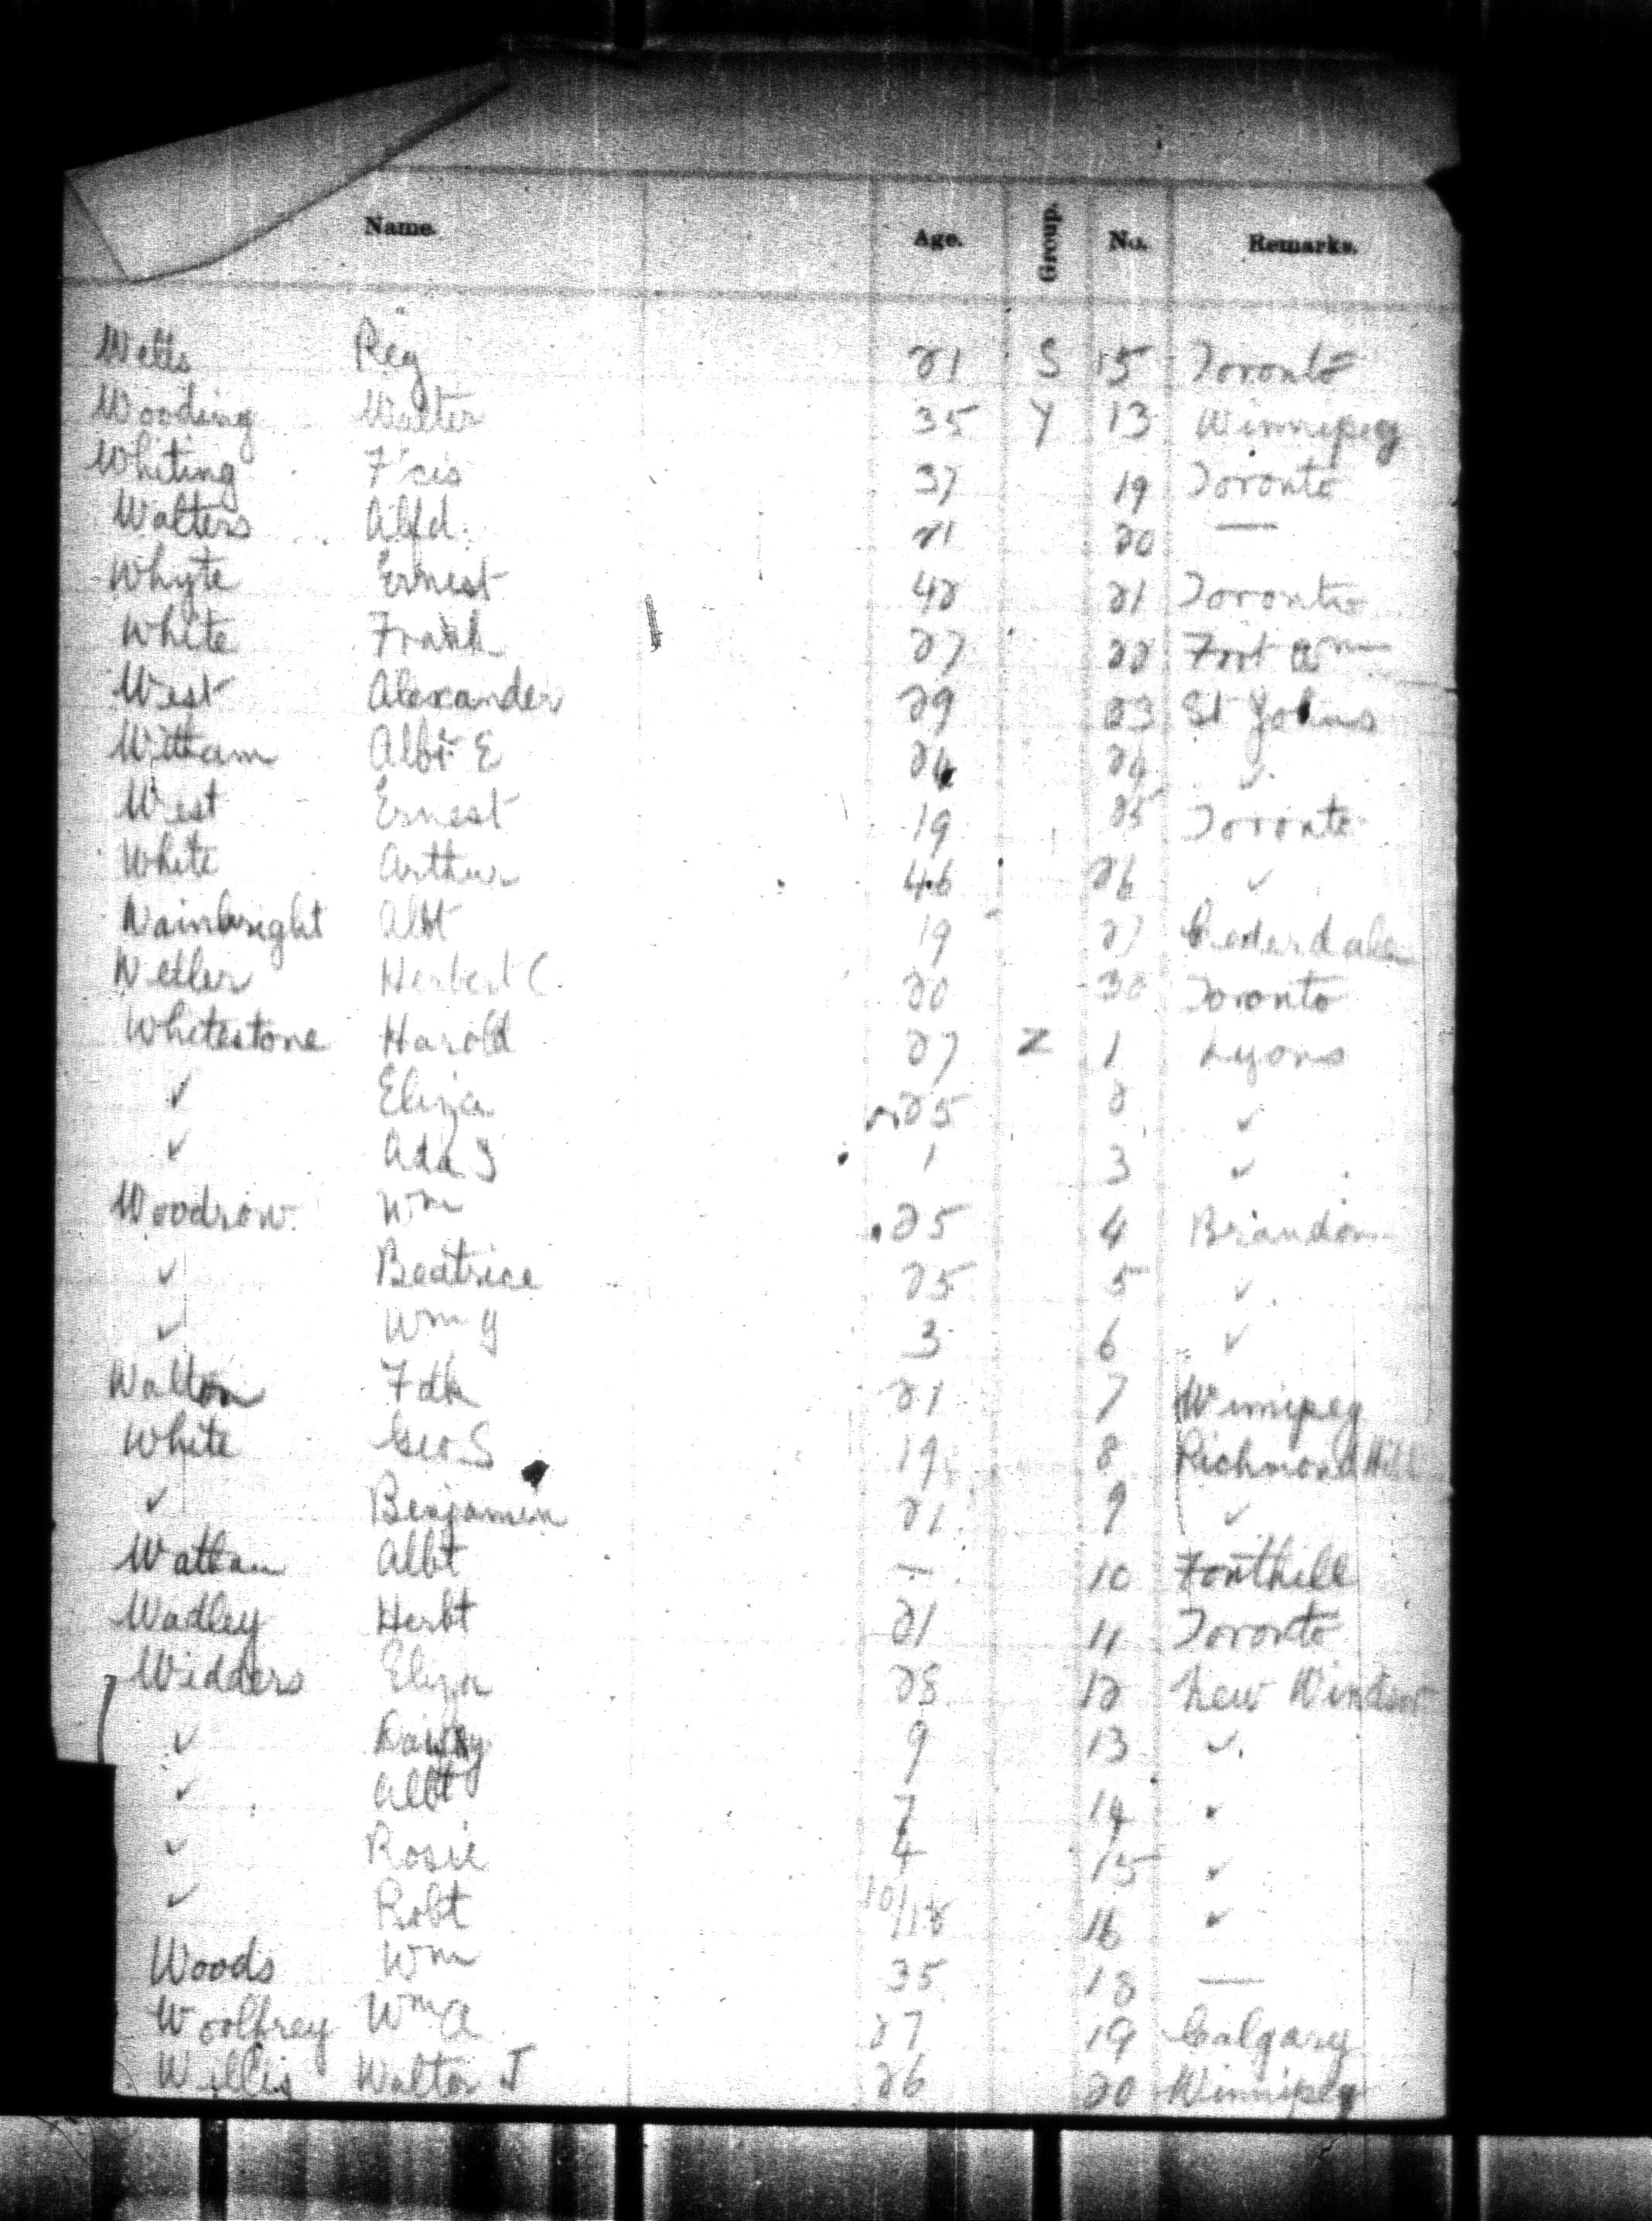 Name. Age. Group. No. Remarks.
Watts Reg 21 S 15 Toronto
Wooding Walter 35 Y 13 Winnipeg
Whiting F'cis 37 19 Toronto
Walters Alfd. 21 20 —
Whyte Ernest 42 21 Toronto
White Frank 27 22 Fort Wm
West Alexander 29 23 St Johns
Wittam Albt E 24 24 ✓
West Ernest 19 25 Toronto
White Arthur 46 26 ✓
Wainwright Albt 19 27
Weller Herbert C. 20 30 Toronto
Whitestone Harold 27 Z 1 Lyons
✓ Eliza 25 2 ✓
✓ Ada S 1 3 ✓
Woodrow. Wm 25 4 Brandon
✓ Beatrice 25 5 ✓
✓ Wm G 3 6 ✓
Walton Fdk 21 7 Winnipeg
White Geo S 19 8 Richmond Hill
✓ Benjamin 21 9 ✓
Watham Albt — 10 Fonthill
Wadley Herbt 21 11 Toronto
Widders Eliza 28 12 New Windsor
✓ Daisy 9 13 ✓
✓ Albt 7 14 ✓
✓ Rosie 4 15 ✓
✓ Robt 10/12 16 ✓
Woods Wm 35 18 —
Woolfrey Wm A 27 19 Calgary
Willis Walter J 26 20 Winnipeg